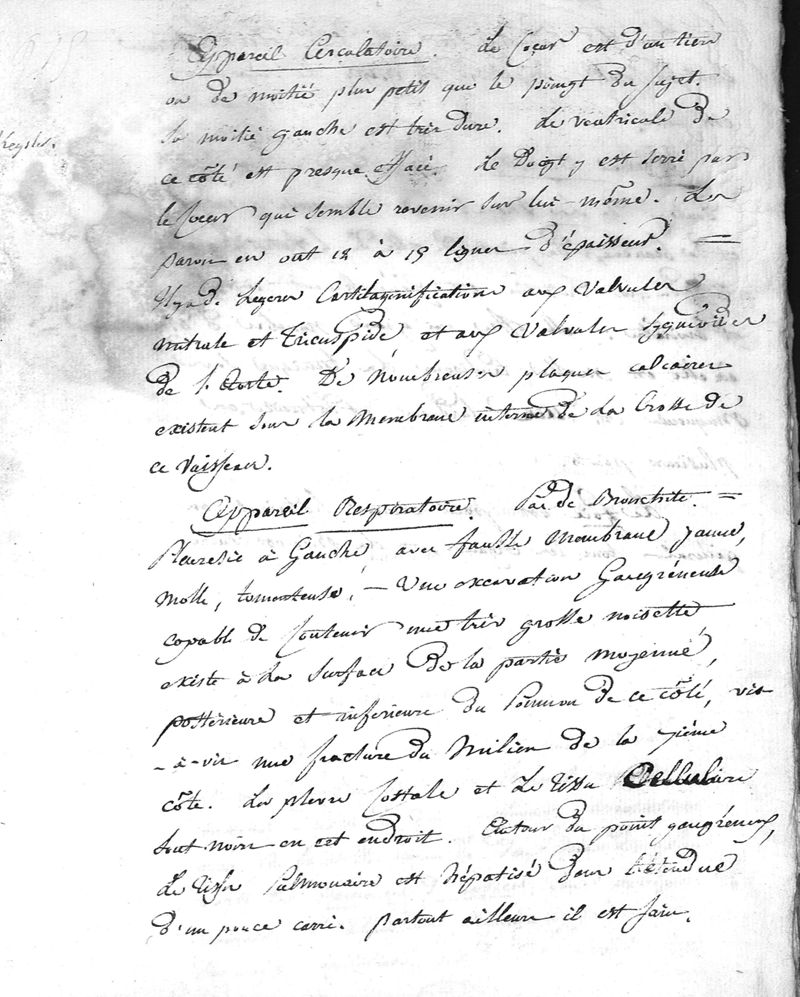 Appareil Circulatoire. Le Cœur est d'un tiers
ou de moitié plus petit que le poingt du sujet.
La moitié gauche est très dure. Le ventricule de
ce côté est presque effacé. Le Doigt y est serré par
le Cœur qui semble revenir sur lui-même. Les
parois en ont 18 à 19 lignes d'épaisseur. =
Il y a de legeres Cartilaginifications aux Valvules
mitrale et tricuspide et aux Valvules sygmoïdes
de l'Aorte. De Nombreuses plaques calcaires
existent sur la Membrane interne de la Crosse de
ce vaisseau.
Appareil Respiratoire. Pas de Bronchite. =
Pleuresie à Gauche, avec fausse Membrane jaune,
Molle, tomenteuse. — Une excavation Gangréneuse
capable de contenir une très grosse noisette
existe à la surface de la partie moyenne,
postérieure et inférieure du Poumon de ce côté, vis
-à-vis une fracture du Milieu de la 7ième
côte. La plèvre Costale et le tissu Cellulaire
sont noirs en cet endroit. Autour du point gangréneux,
Le tissu Pulmonaire est hépatisé dans l'étendue
d'un pouce carré. partout ailleurs il est sain.